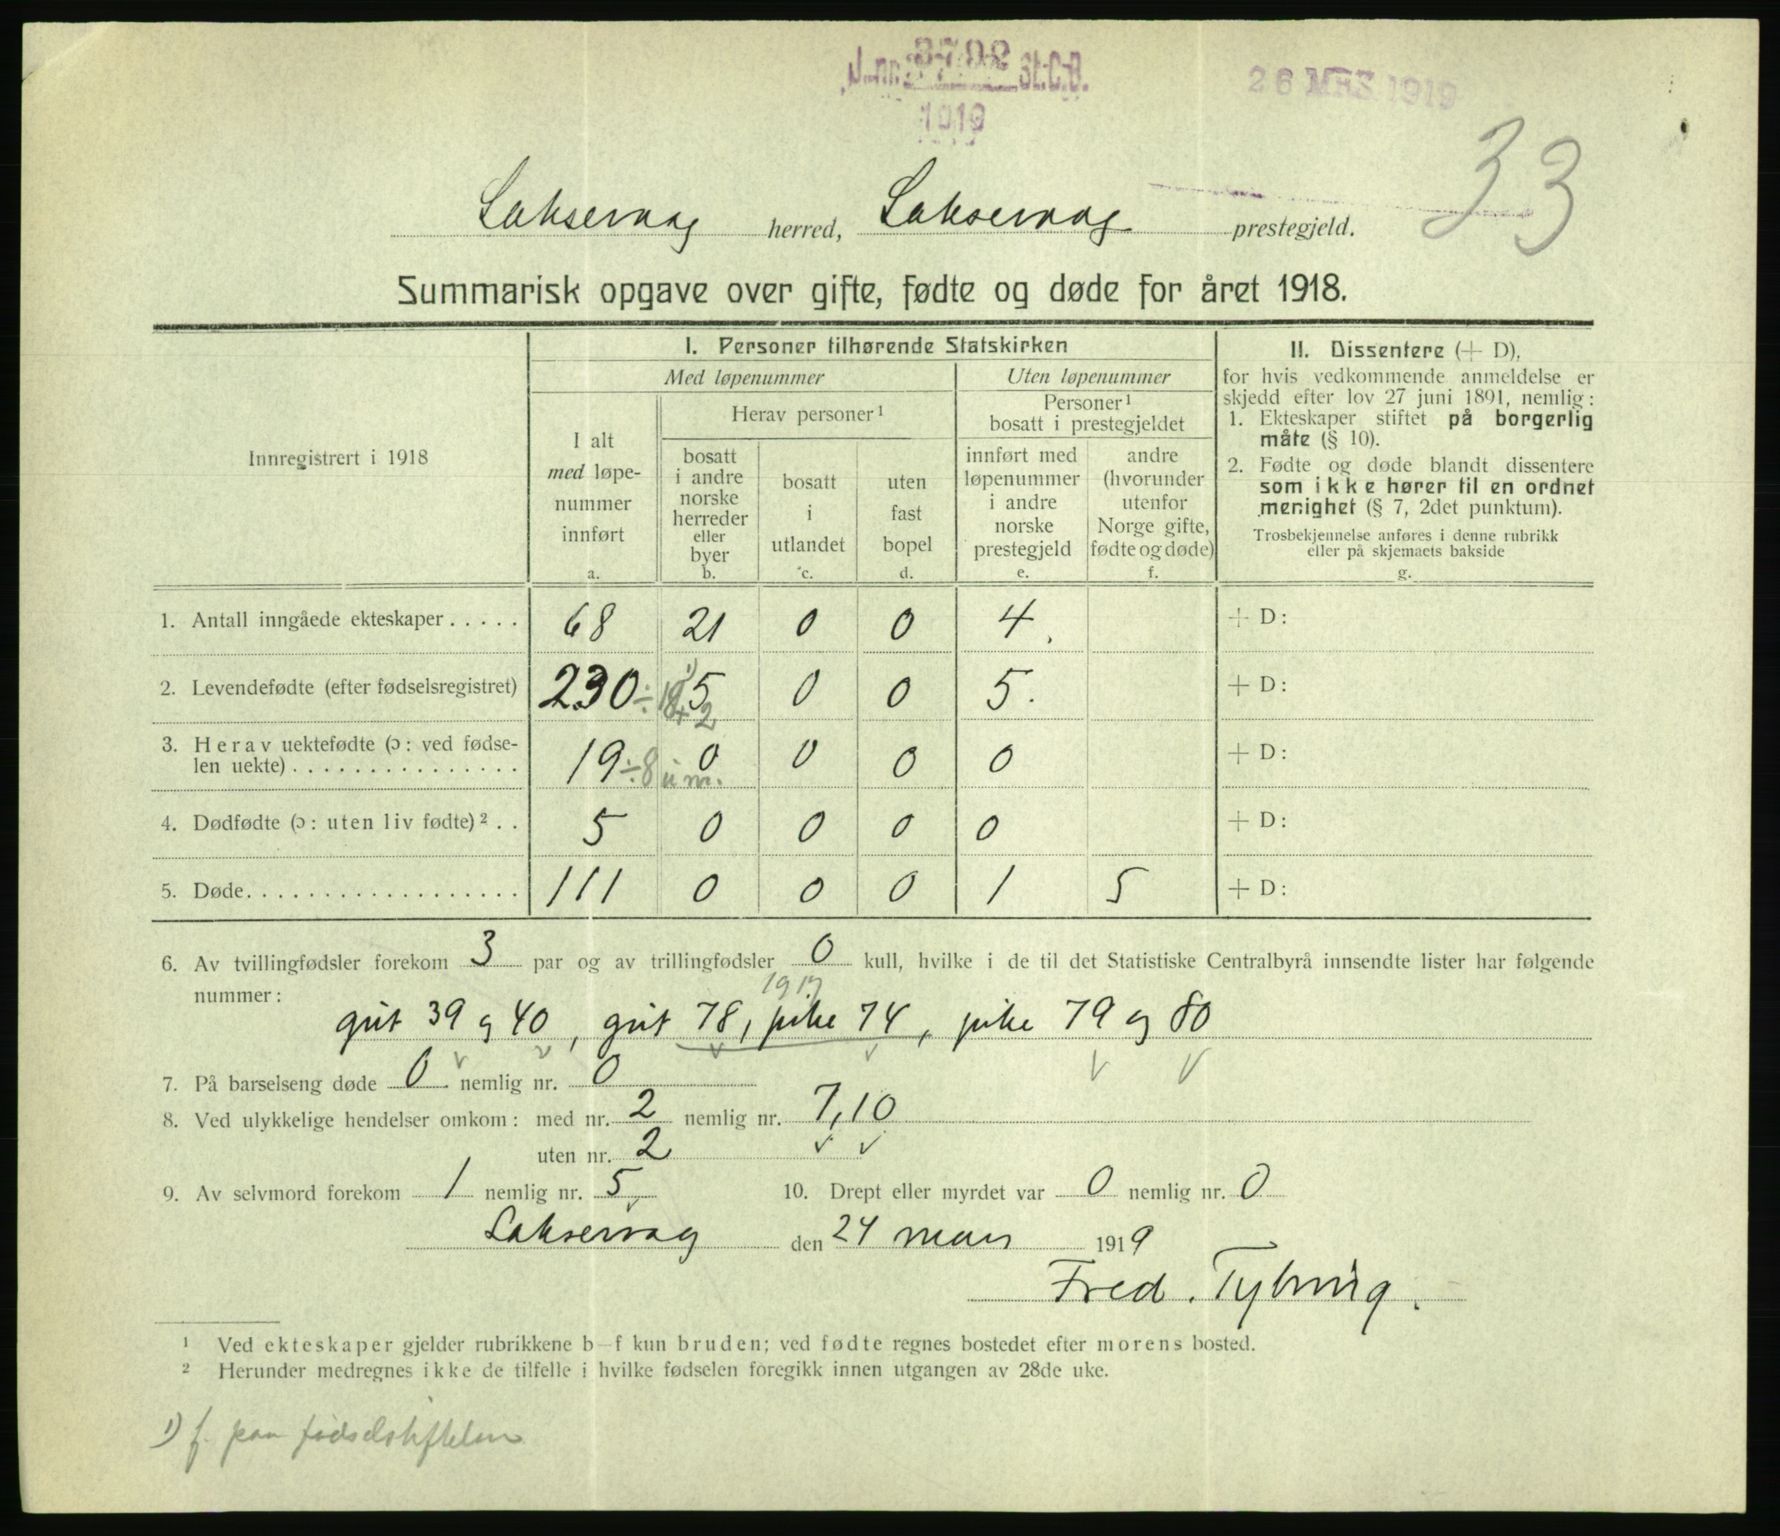 J.-nr. 3792 St.C.B.
1919
26 MRS 1919
33
Laksevaag herred, Laksevaag prestegjeld.
Summarisk opgave over gifte, fødte og døde for året 1918.
Innregistrert i 1918
I. Personer tilhørende Statskirken
Med løpenummer
Uten løpenummer
I alt
med løpe-
nummer
innført
a.
Herav personer¹
bosatt
i andre
norske
herreder
eller
byer
b.
bosatt
i
utlandet
c.
uten
fast
bopel
d.
Personer¹
bosatt i prestegjeldet
innført med
løpenummer
i andre
norske
prestegjeld
e.
andre
(hvorunder
utenfor
Norge gifte,
fødte og døde)
f.
II. Dissentere (+ D),
for hvis vedkommende anmeldelse er
skjedd efter lov 27 juni 1891, nemlig:
1. Ekteskaper stiftet på borgerlig
måte (§ 10).
2. Fødte og døde blandt dissentere
som ikke hører til en ordnet
menighet (§ 7, 2det punktum).
Trosbekjennelse anføres i denne rubrikk
eller på skjemaets bakside
g.
1. Antall inngåede ekteskaper..... 68 21 0 0 4. + D:
2. Levendefødte (efter fødselsregistret) 230 ÷ 18 ¹) 5 + 2 0 0 5. + D:
3. Herav uektefødte (ɔ: ved fødse-
len uekte)................ 19 ÷ 8 u m. 0 0 0 0 + D:
4. Dødfødte (ɔ: uten liv fødte)².. 5 0 0 0 0 + D:
5. Døde.................. 111 0 0 0 1 5 + D:
6. Av tvillingfødsler forekom 3 par og av trillingfødsler 0 kull, hvilke i de til det Statistiske Centralbyrå innsendte lister har følgende
nummer:
1917
gut 39 og 40, gut 78, pike 74, pike 79 og 80
7. På barselseng døde 0 nemlig nr. 0
8. Ved ulykkelige hendelser omkom: med nr. 2 nemlig nr. 7, 10
uten nr. 2
9. Av selvmord forekom 1 nemlig nr. 5 10. Drept eller myrdet var 0 nemlig nr. 0
Laksevaag den 24 mars 1919
Fred. Tybring.
¹ Ved ekteskaper gjelder rubrikkene b—f kun bruden; ved fødte regnes bostedet efter morens bosted.
² Herunder medregnes ikke de tilfelle i hvilke fødselen foregikk innen utgangen av 28de uke.
¹) f. paa fødselstiftelsen